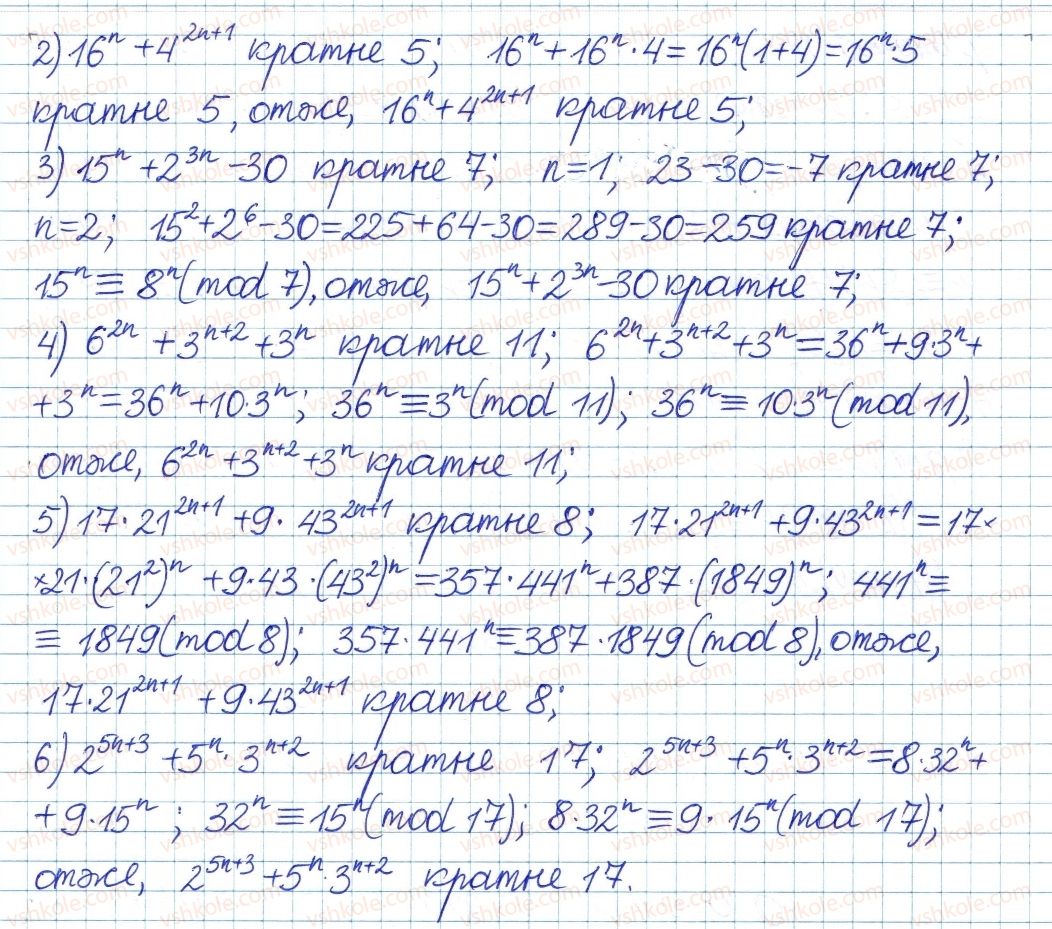 2) 16ⁿ + 4²ⁿ⁺¹ кратне 5; 16ⁿ + 16ⁿ · 4 = 16ⁿ(1+4) = 16ⁿ·5
кратне 5, отже, 16ⁿ + 4²ⁿ⁺¹ кратне 5;
3) 15ⁿ + 2³ⁿ - 30 кратне 7; n=1; 23 - 30 = -7 кратне 7;
n=2; 15² + 2⁶ - 30 = 225 + 64 - 30 = 289 - 30 = 259 кратне 7;
15ⁿ ≡ 8ⁿ (mod 7), отже, 15ⁿ + 2³ⁿ - 30 кратне 7;
4) 6²ⁿ + 3ⁿ⁺² + 3ⁿ кратне 11; 6²ⁿ + 3ⁿ⁺² + 3ⁿ = 36ⁿ + 9·3ⁿ +
+ 3ⁿ = 36ⁿ + 10·3ⁿ; 36ⁿ ≡ 3ⁿ (mod 11); 36ⁿ ≡ 10·3ⁿ (mod 11),
отже, 6²ⁿ + 3ⁿ⁺² + 3ⁿ кратне 11;
5) 17·21²ⁿ⁺¹ + 9·43²ⁿ⁺¹ кратне 8; 17·21²ⁿ⁺¹ + 9·43²ⁿ⁺¹ = 17×
×21·(21²)ⁿ + 9·43·(43²)ⁿ = 357·441ⁿ + 387·(1849)ⁿ; 441ⁿ ≡
≡ 1849 (mod 8); 357·441ⁿ ≡ 387·1849 (mod 8), отже,
17·21²ⁿ⁺¹ + 9·43²ⁿ⁺¹ кратне 8;
6) 2⁵ⁿ⁺³ + 5ⁿ·3ⁿ⁺² кратне 17; 2⁵ⁿ⁺³ + 5ⁿ·3ⁿ⁺² = 8·32ⁿ +
+ 9·15ⁿ; 32ⁿ ≡ 15ⁿ (mod 17); 8·32ⁿ ≡ 9·15ⁿ (mod 17);
отже, 2⁵ⁿ⁺³ + 5ⁿ·3ⁿ⁺² кратне 17.